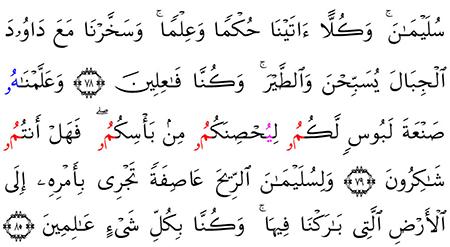 سُلَيْمَـٰنَ ۚ وَكُلًّا ءَاتَيْنَا حُكْمًا وَعِلْمًا ۚ وَسَخَّرْنَا مَعَ دَاوُۥدَ
ٱلْجِبَالَ يُسَبِّحْنَ وَٱلطَّيْرَ ۚ وَكُنَّا فَـٰعِلِينَ ٧٨ وَعَلَّمْنَـٰهُۥ
صَنْعَةَ لَبُوسٍ لَّكُمُۥ لِيُحْصِنَكُمُۥ مِنۢ بَأْسِكُمُۥ ۖ فَهَلْ أَنتُمُۥ
شَـٰكِرُونَ ٧٩ وَلِسُلَيْمَـٰنَ ٱلرِّيحَ عَاصِفَةً تَجْرِى بِأَمْرِهِۦ إِلَى
ٱلْأَرْضِ ٱلَّتِى بَـٰرَكْنَا فِيهَا ۚ وَكُنَّا بِكُلِّ شَىْءٍ عَـٰلِمِينَ ٨٠